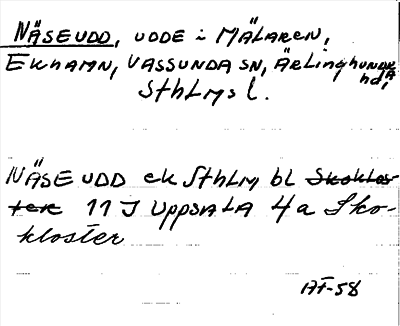 NÄSEUDD, UDDE i MÄLAREN,
EKHAMN, VASSUNDA SN, ÄRLINGHUNDRA
hd,
SthLms l.
NÄSE UDD ek SthLm bl Skoklos-
ter 11 I UPPSALA 4a Sko-
kloster
AF-58